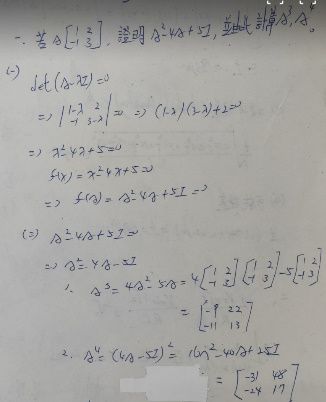 一. 若 A [1 2 -1 3], 證明 A²-4A+5I, 並計算 A³, A⁴。
(一)
det(A-λI)=0
=> |1-λ 2 -1 3-λ|=0 => (1-λ)(3-λ)+2=0
=> λ²-4λ+5=0
f(x)=x²-4x+5=0
=> f(A)=A²-4A+5I=0
(二) A²-4A+5I=0
=> A²=4A-5I
1. A³=4A²-5A=4[1 2 -1 3][1 2 -1 3]-5[1 2 -1 3]
=[-9 22 -11 13]
2. A⁴=(4A-5I)²=16A²-40A+25I
=[-31 48 -24 17]